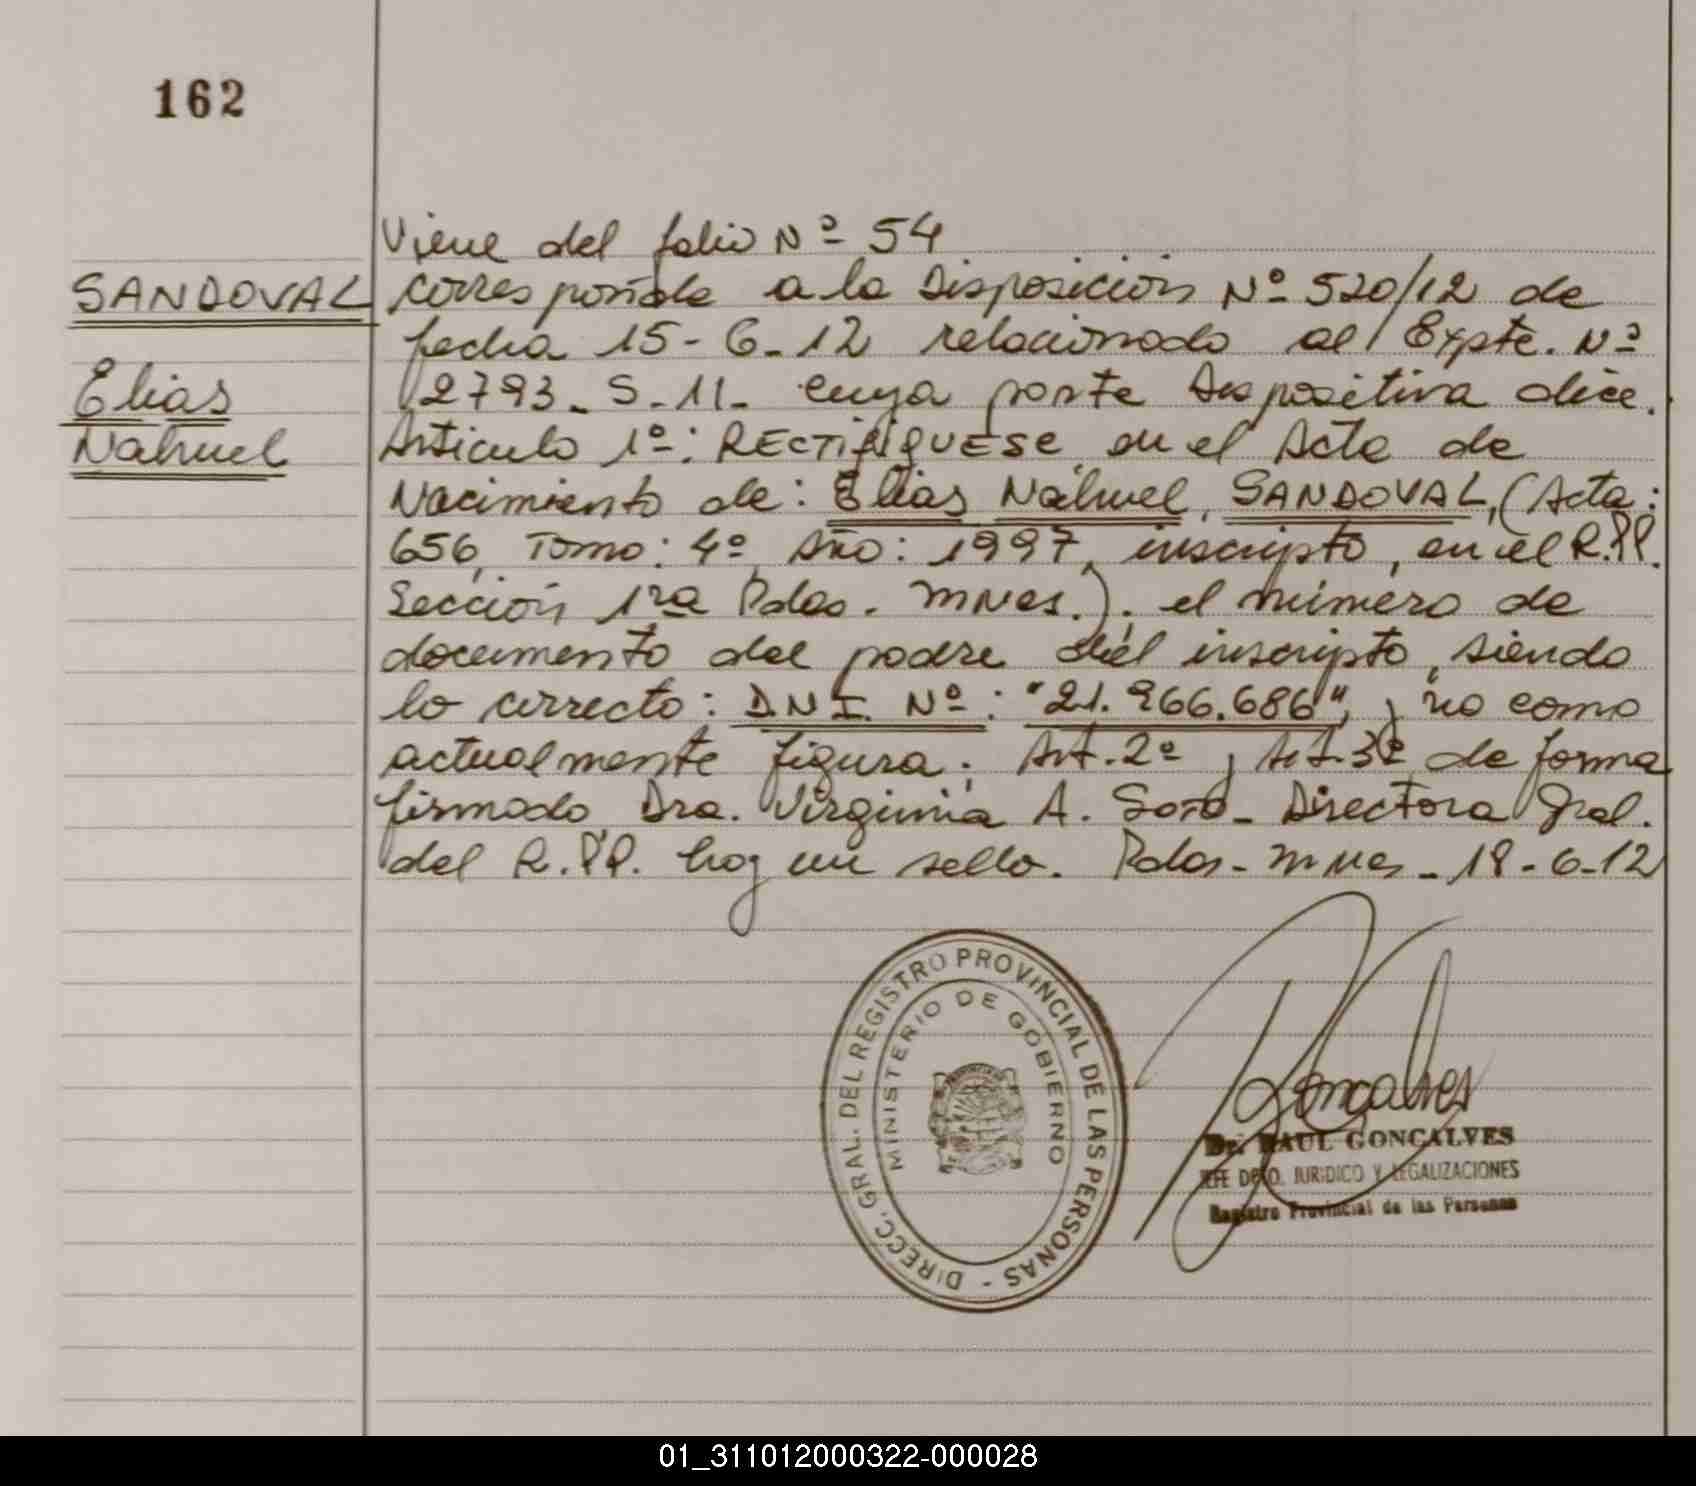 162
Viene del folio Nº 54
SANDOVAL
Elias
Nahuel
corresponde a la Disposición Nº 520/12 de
fecha 15-6-12 relacionado al Expte. Nº
2793-S-11- cuya parte dispositiva dice.
Articulo 1º: RECTIFIQUESE en el Acta de
Nacimiento de: Elias Nahuel, SANDOVAL, (Acta:
656, Tomo: 4º Año: 1997, inscripto, en el R.P.P.
Sección 1ra Pdas. Mnes.). el número de
documento del padre del inscripto, siendo
lo correcto: D.N.I. Nº: "21.966.686", y no como
actualmente figura; Art. 2º y Art. 3º de forma
firmado Dra. Virginia A. Soto- Directora Gral.
del R.P.P. hay un sello. Pdas- Mnes- 18-6-12
DIRECC. GRAL. DEL REGISTRO PROVINCIAL DE LAS PERSONAS -
MINISTERIO DE GOBIERNO
Goncalves
Dr. RAUL GONCALVES
JEFE DPTO. JURIDICO Y LEGALIZACIONES
Registro Provincial de las Personas
01_311012000322-000028